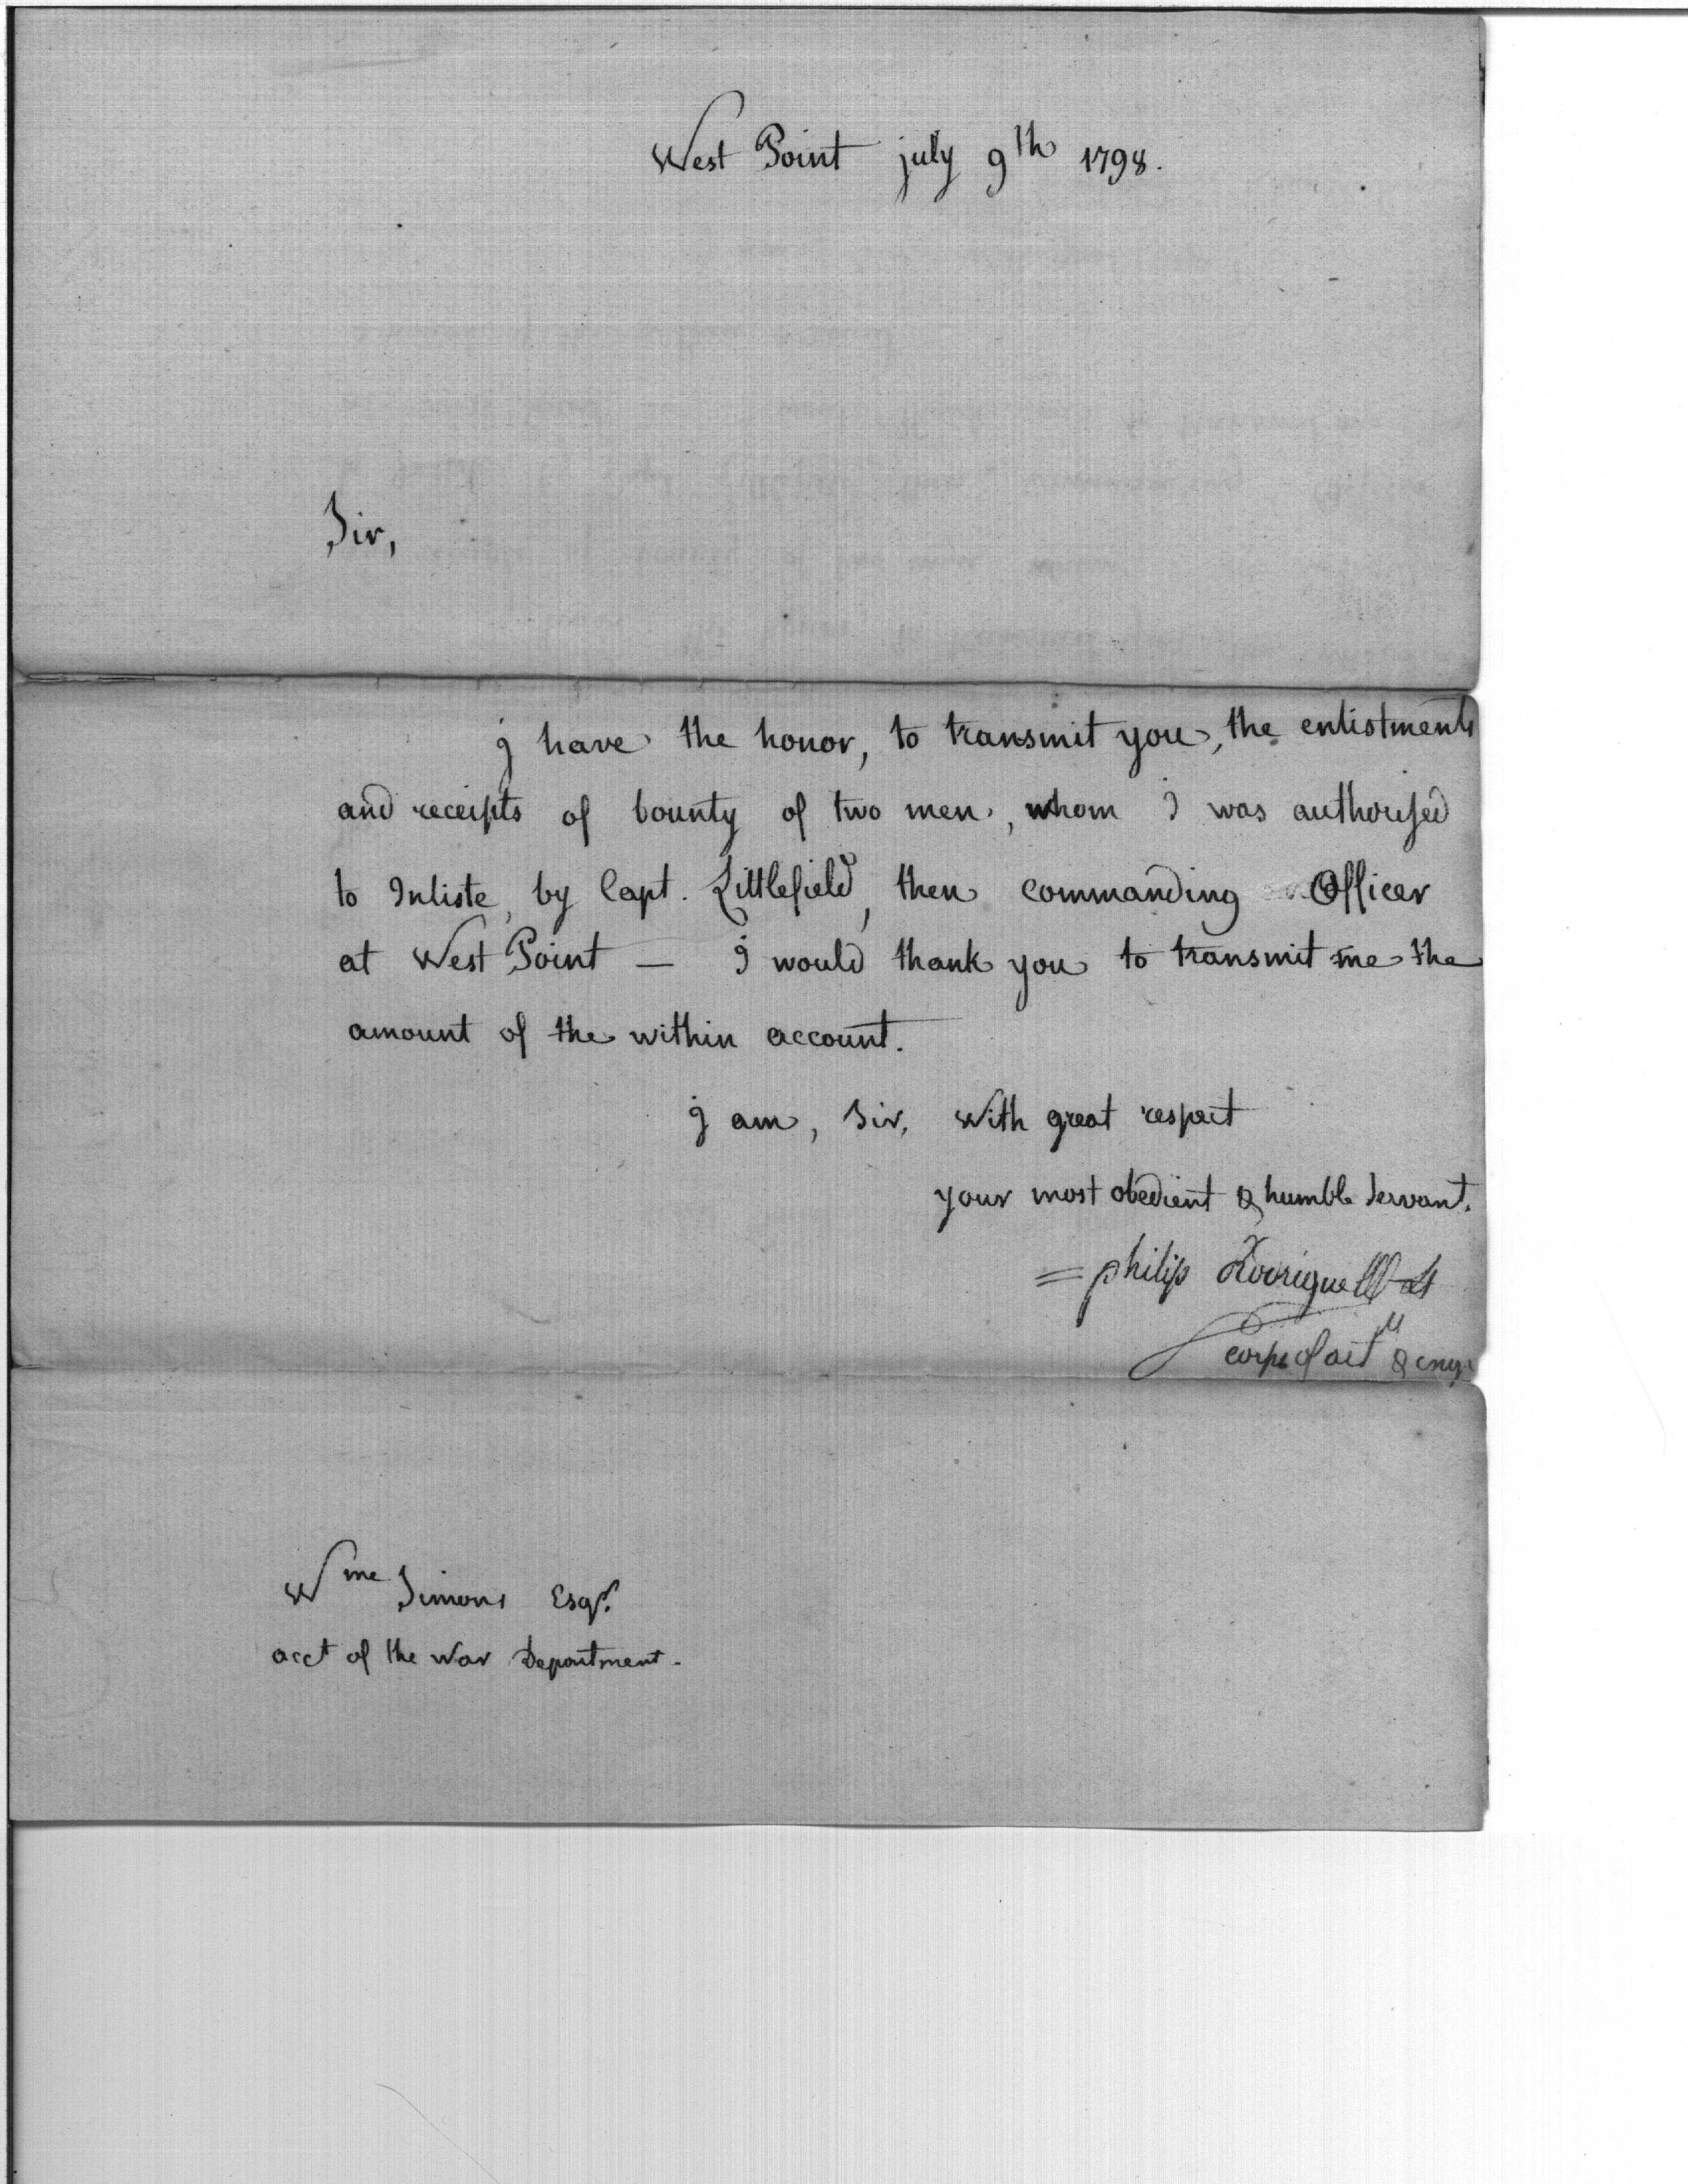 West Point july 9th 1798.
Sir,
I have the honor, to transmit you, the enlistments
and receipts of bounty of two men, whom I was authorised
to Inliste, by Capt. Littlefield, then commanding Officer
at West Point — I would thank you to transmit me the
amount of the within account.
I am, Sir, With great respect
your most obedient & humble Servant.
philip
corps of artll & engr
Wme Simons Esqr.
acct of the War Department.